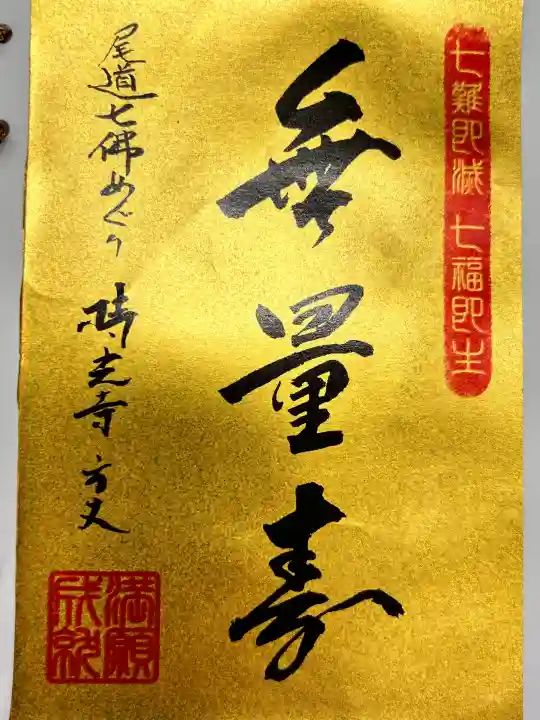 七難即滅 七福即生
無量寿
尾道七佛めぐり 持光寺 方丈
満願
成就